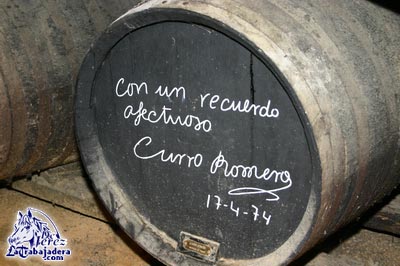 con un recuerdo
afectuoso
Curro Romero
17-4-74
Jerez
LaTrabajadera
.com